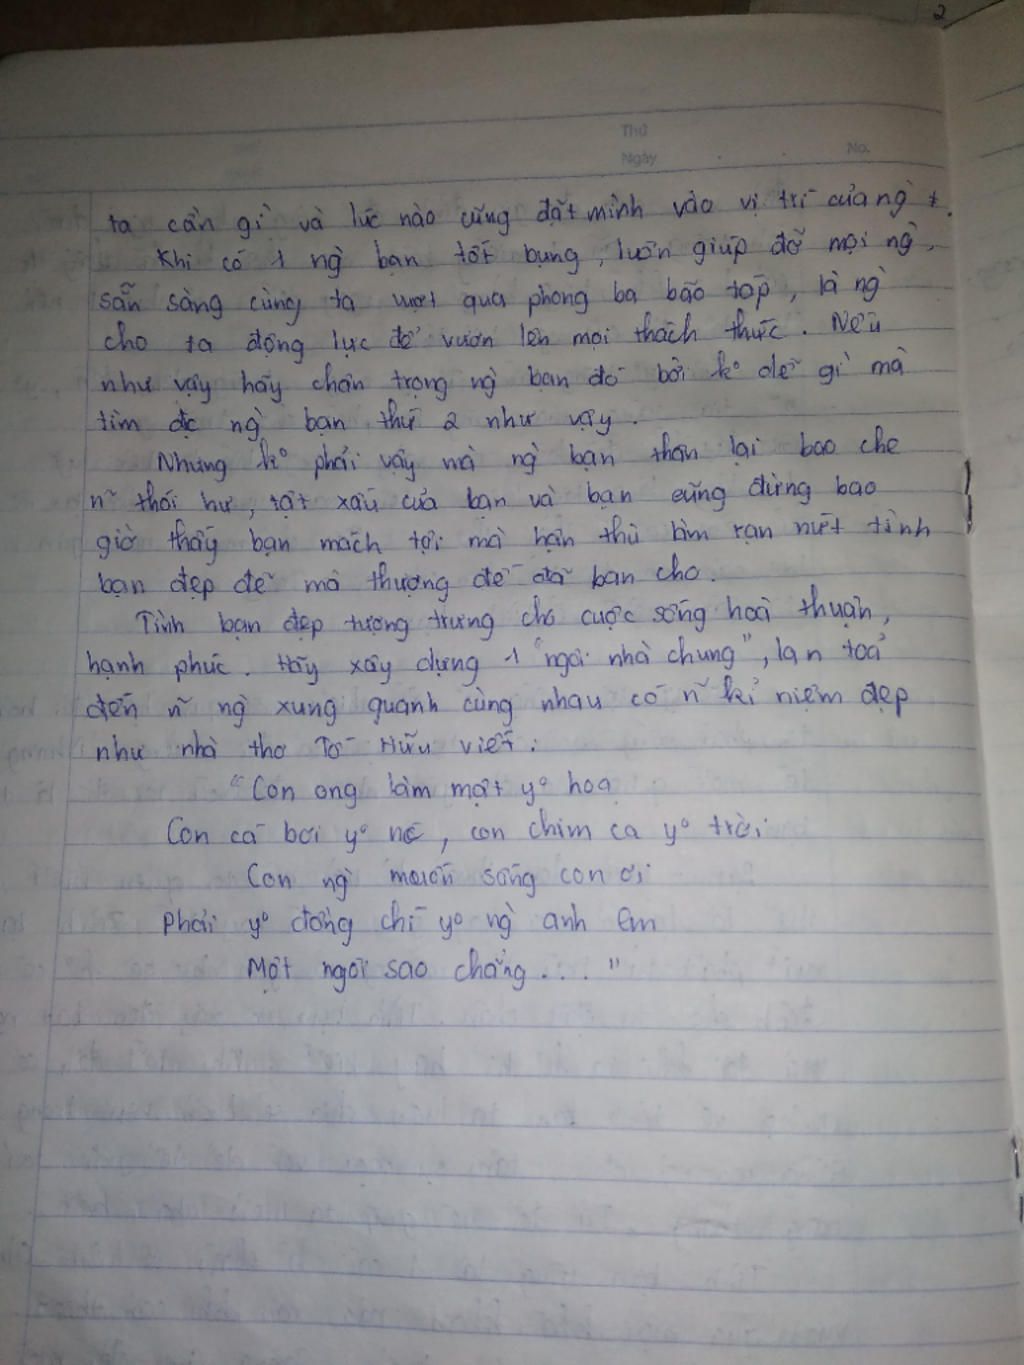 2
Thứ
Ngày
No.
ta cần gì và lúc nào cũng đặt mình vào vị trí của ng` #.
Khi có 1 ng` bạn tốt bụng, luôn giúp đỡ mọi ng`,
sẵn sàng cùng ta vượt qua phong ba bão táp, là ng`
cho ta động lực để vươn lên mọi thách thức. Nếu
như vậy hãy chân trọng ng` bạn đó bởi k° dễ gì mà
tìm đc ng` bạn thứ 2 như vậy.
Nhưng k° phải vậy mà ng` bạn thân lại bao che
n~ thói hư, tật xấu của bạn và bạn cũng đừng bao
giờ thấy bạn mách tội mà hận thù làm rạn nứt tình
bạn đẹp đẽ mà thượng đế đã ban cho.
Tình bạn đẹp tượng trưng cho cuộc sống hoà thuận,
hạnh phúc. Hãy xây dựng 1 "ngôi nhà chung", lan toả
đến n~ ng` xung quanh cùng nhau có n~ kỉ niệm đẹp
như nhà thơ Tố Hữu viết:
"Con ong làm mật y° hoa
Con cá bơi y° nc, con chim ca y° trời
Con ng` muốn sống con ơi
Phải y° đồng chí y° ng` anh em
Một ngôi sao chẳng..."